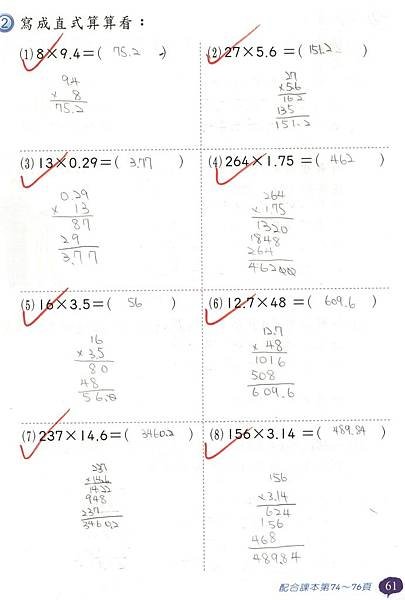 2 寫成直式算算看：
(1) 8×9.4＝( 75.2 )
9.4
× 8
75.2
(2) 27×5.6＝( 151.2 )
27
×5.6
162
135
151.2
(3) 13×0.29＝( 3.77 )
0.29
× 13
87
29
3.77
(4) 264×1.75＝( 462 )
264
×1.75
1320
1848
264
462.00
(5) 16×3.5＝( 56 )
16
×3.5
80
48
56.0
(6) 12.7×48＝( 609.6 )
12.7
× 48
1016
508
609.6
(7) 237×14.6＝( 3460.2 )
237
×14.6
1422
948
237
3460.2
(8) 156×3.14＝( 489.84 )
156
×3.14
624
156
468
489.84
配合課本第74～76頁 61